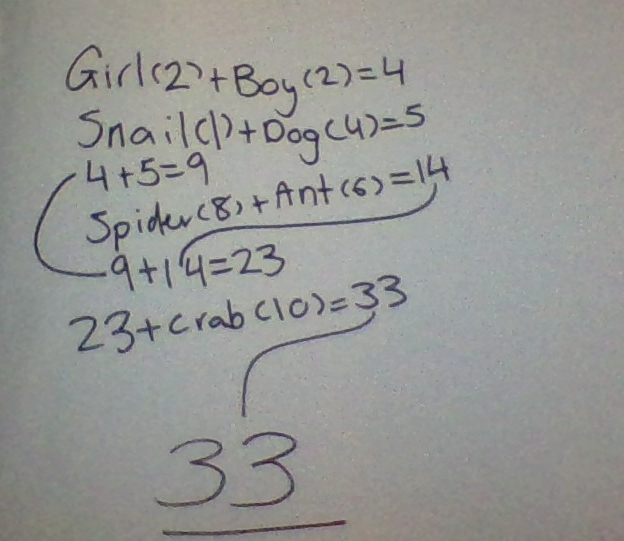 Girl(2)+Boy(2)=4
Snail(1)+Dog(4)=5
4+5=9
Spider(8)+Ant(6)=14
9+14=23
23+crab(10)=33
33